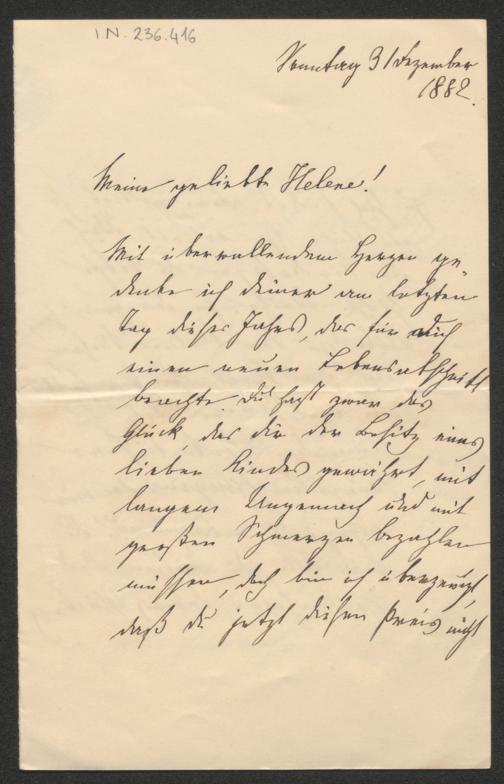 IN. 236.416
Sonntag 31 Dezember
1882.
Meine geliebte Helene!
Mit überwallendem Herzen ge„
denke ich deiner am letzten
Tag dieses Jahres, das für dich
einen neuen Lebensabschnitt
brachte. Du hast zwar das
Glück, das dir der Besitz eines
lieben Kindes gewährt, mit
langem Ungemach und mit
großen Schmerzen bezahlen
müssen, doch bin ich überzeugt,
daß du jetzt diesen Preis nicht